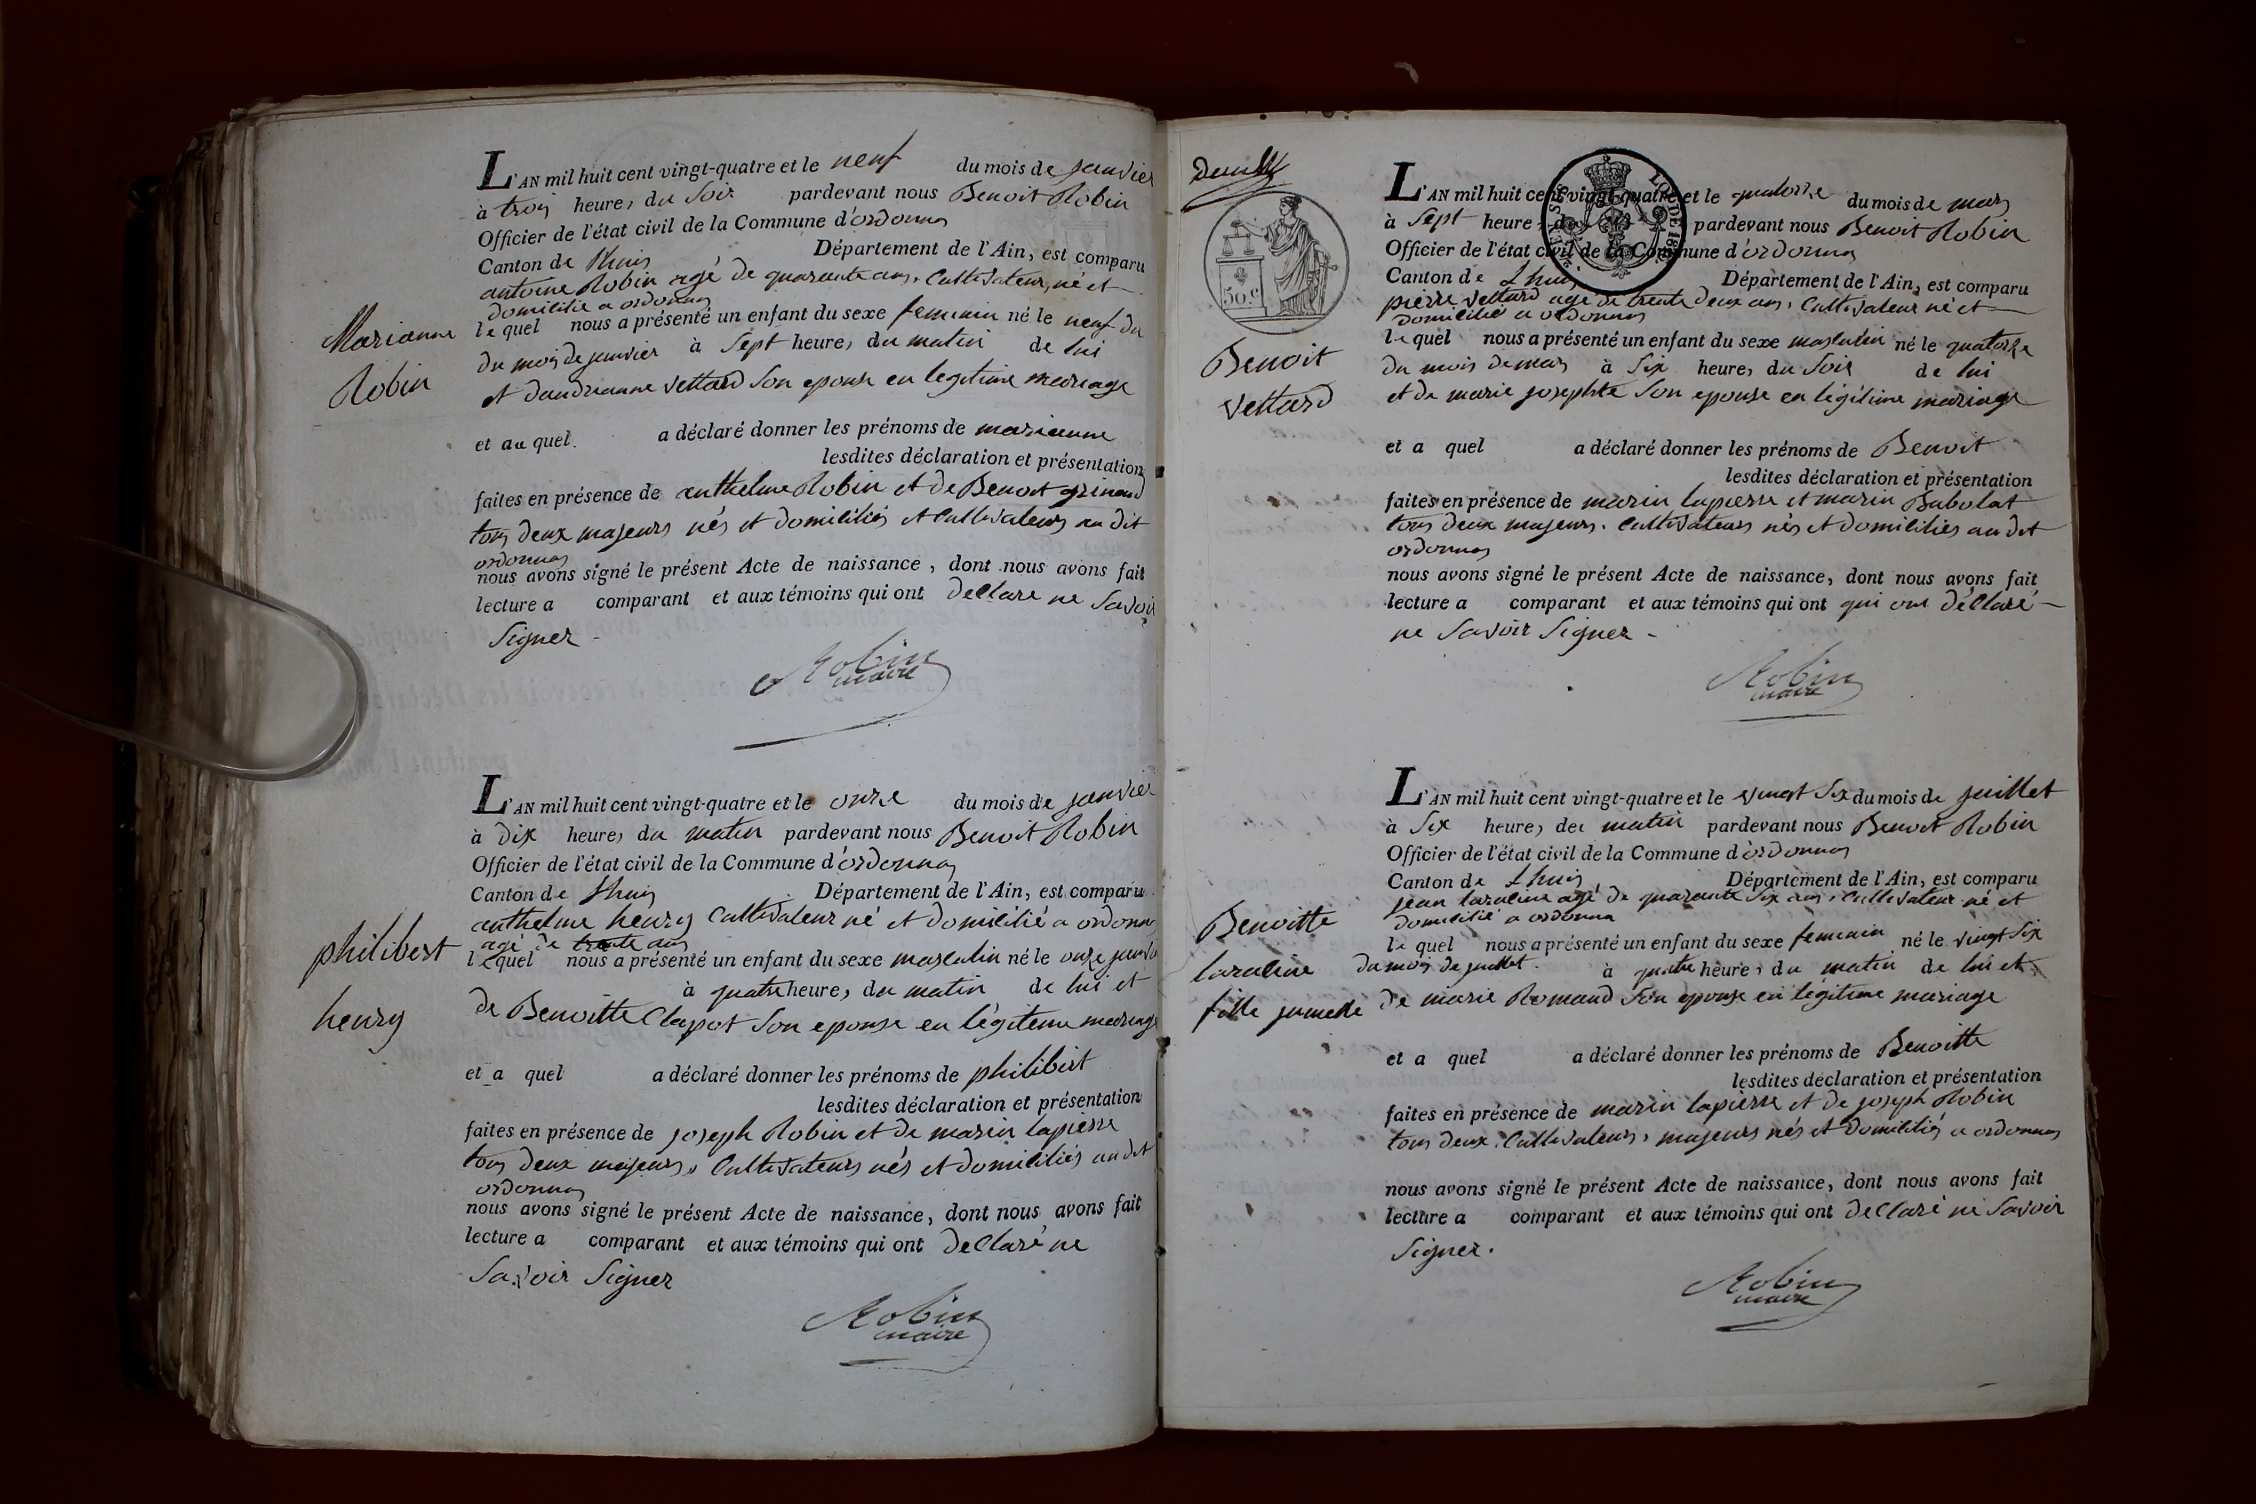 L'AN mil huit cent vingt-quatre et le neuf du mois de janvier
à trois heures du soir pardevant nous Benoit Robin
Officier de l'état civil de la Commune d'ordonnas
Canton de Lhuis Département de l'Ain, est comparu
antoine Robin agé de quarante ans, Cultivateur, né et
domicilié a ordonnas
Marianne
Robin
le quel nous a présenté un enfant du sexe feminin né le neuf du
du mois de janvier à sept heures du matin de lui
et dandreanne Vettard son epouse en legitime mariage
et au quel a déclaré donner les prénoms de marianne
lesdites déclaration et présentation
faites en présence de anthelme Robin et de Benoit grinand
tous deux majeurs nés et domiciliés et Cultivateurs au dit
ordonnas
nous avons signé le présent Acte de naissance, dont nous avons fait
lecture a comparant et aux témoins qui ont déclaré ne savoir
signer -
Robin
maire
L'AN mil huit cent vingt-quatre et le onze du mois de janvier
à dix heures du matin pardevant nous Benoit Robin
Officier de l'état civil de la Commune d'ordonnas
Canton de Lhuis Département de l'Ain, est comparu
anthelme henry Cultivateur né et domicilié a ordonnas
agé de trente ans
philibert
henry
le quel nous a présenté un enfant du sexe masculin né le onze janvier
à quatre heures du matin de lui et
de Benoitte Clapot son epouse en légitime mariage
et a quel a déclaré donner les prénoms de philibert
lesdites déclaration et présentation
faites en présence de joseph Robin et de marin lapierre
tous deux majeurs, Cultivateurs nés et domiciliés au dit
ordonnas
nous avons signé le présent Acte de naissance, dont nous avons fait
lecture a comparant et aux témoins qui ont déclaré ne
savoir signer
Robin
maire
50.c
LOI DE 18
L'AN mil huit cent vingt-quatre et le quatorze du mois de mars
à sept heures du soir pardevant nous Benoit Robin
Officier de l'état civil de la Commune d'ordonnas
Canton de Lhuis Département de l'Ain, est comparu
pierre vettard agé de trente deux ans, Cultivateur né et
domicilié a ordonnas
Benoit
Vettard
le quel nous a présenté un enfant du sexe masculin né le quatorze
du mois de mars à six heures du soir de lui
et de marie josephte son epouse en légitime mariage
et a quel a déclaré donner les prénoms de Benoit
lesdites déclaration et présentation
faites en présence de marin lapierre et marin Babolat
tous deux majeurs, Cultivateurs nés et domiciliés au dit
ordonnas
nous avons signé le présent Acte de naissance, dont nous avons fait
lecture a comparant et aux témoins qui ont qui ont déclaré
ne savoir signer -
Robin
maire
L'AN mil huit cent vingt-quatre et le vingt six du mois de juillet
à six heures du matin pardevant nous Benoit Robin
Officier de l'état civil de la Commune d'ordonnas
Canton de Lhuis Département de l'Ain, est comparu
jean laracine agé de quarante six ans, Cultivateur né et
domicilié a ordonna
Benoitte
laracine
fille jumelle
le quel nous a présenté un enfant du sexe feminin né le vingt six
du mois de juillet. à quatre heures du matin de lui et
de marie Romand son epouse en légitime mariage
et a quel a déclaré donner les prénoms de Benoitte
lesdites déclaration et présentation
faites en présence de marin lapierre et de joseph Robin
tous deux Cultivateurs, majeurs nés et domiciliés a ordonnas
nous avons signé le présent Acte de naissance, dont nous avons fait
lecture a comparant et aux témoins qui ont déclaré ne savoir
signer.
Robin
maire